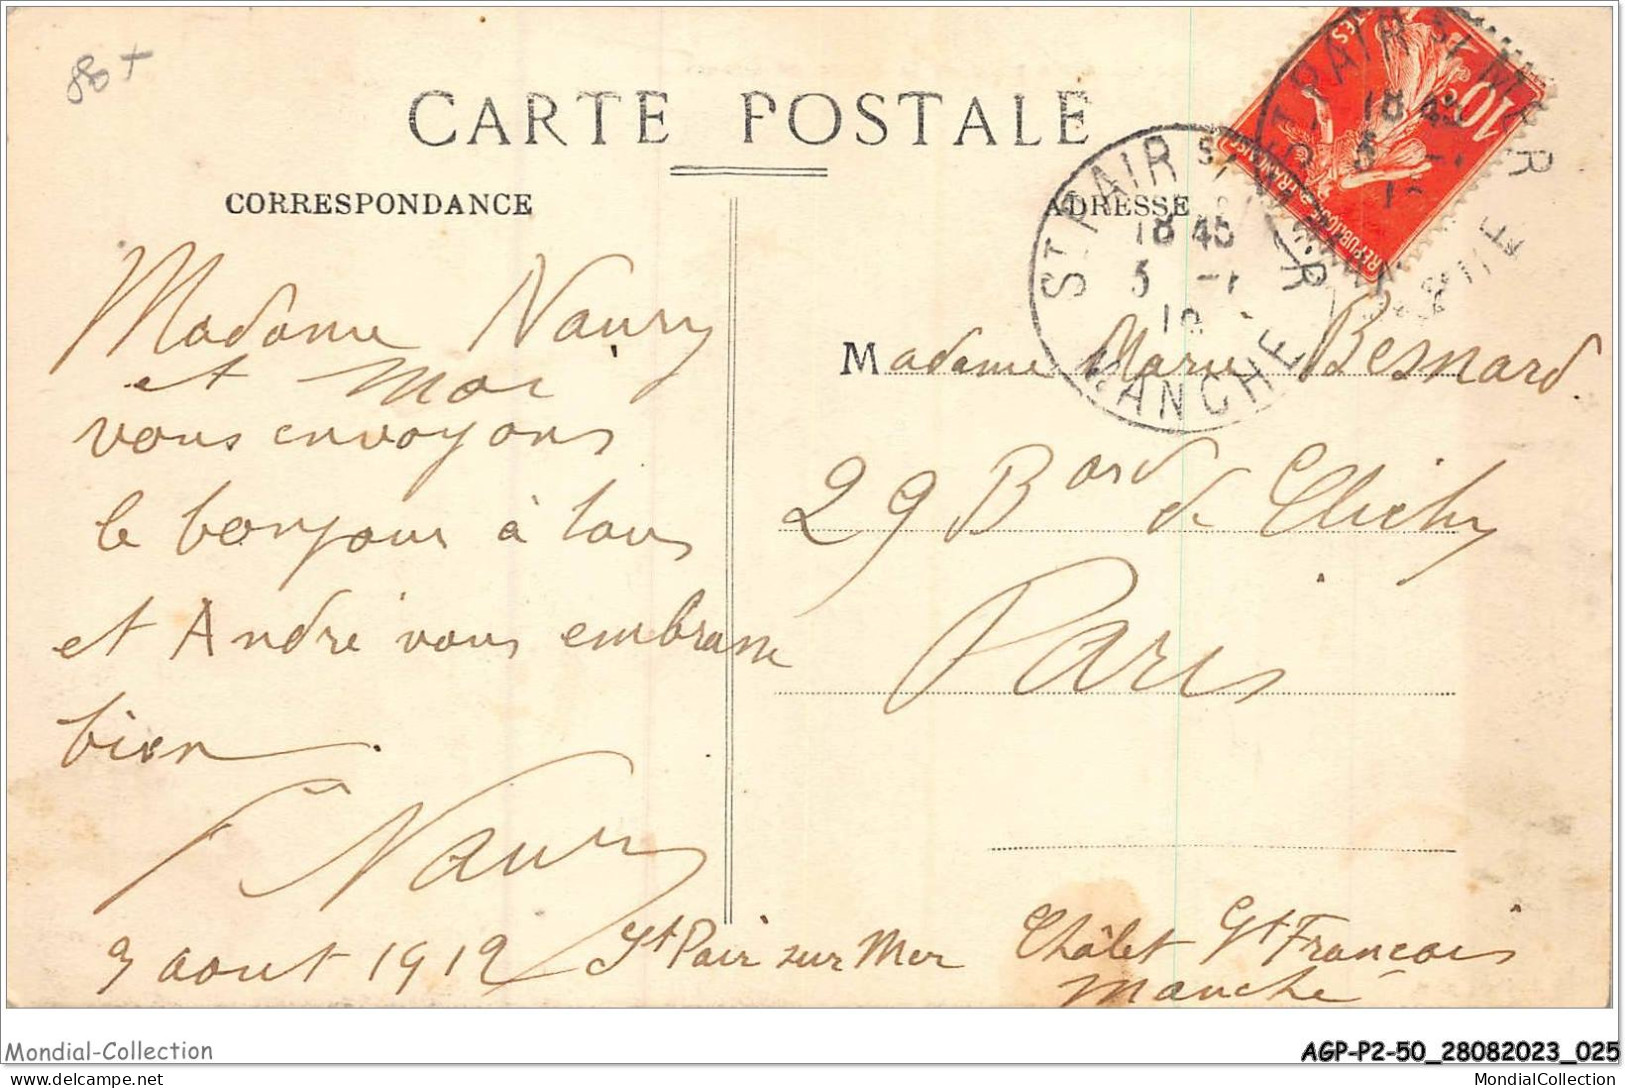 88+
CARTE POSTALE
CORRESPONDANCE
ADRESSE
ST PAIR S/ MER
18 45
MANCHE
ST PAIR S/ MER
18 45
10c
REPUBLIQUE FRANÇAISE
Madame Naury
et moi
vous envoyons
le bonjour à tous
et André vous embrasse
bien
Naury
3 aout 1912 St Pair sur Mer Châlet St Francois
Manche
Madame Marie Besnard
29 Bard de Clichy
Paris
Mondial-Collection
AGP-P2-50_28082023_025
delcampe.net
MondialCollection